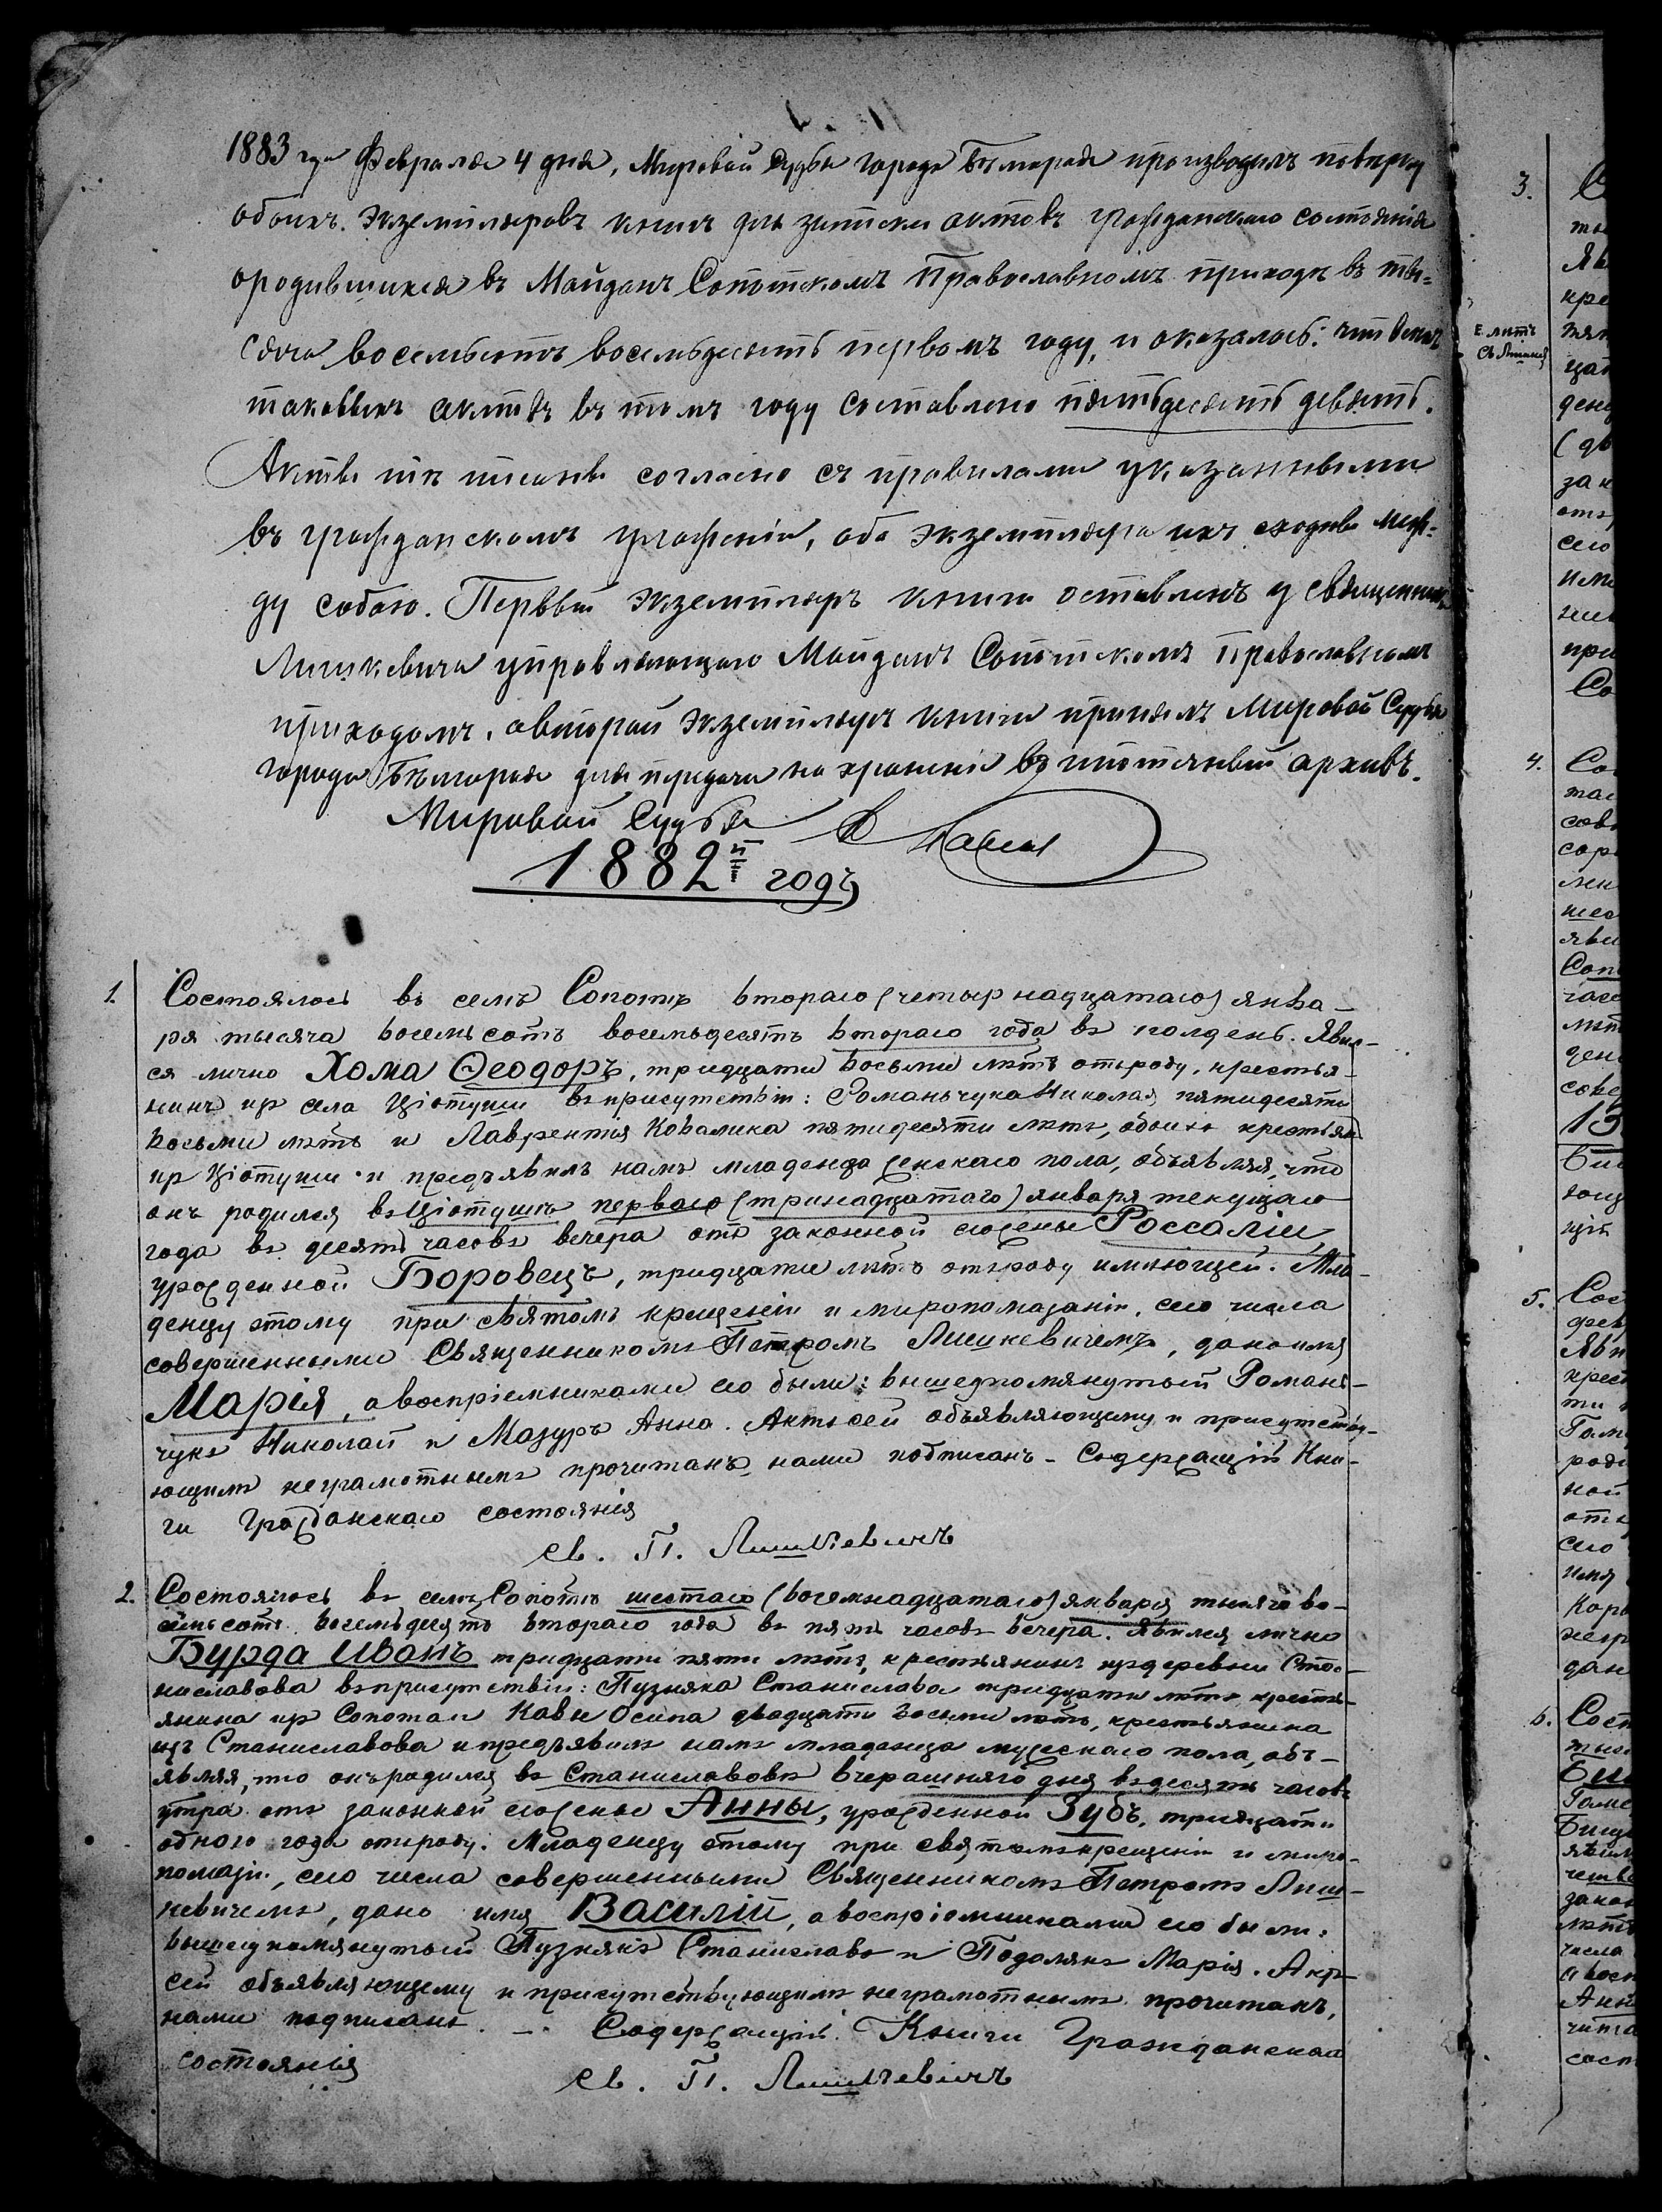 1883 года Февраля 4 дня, Мировой Судья города Бѣлгорая производилъ повѣрку
обоихъ экземпляровъ книгъ для записки актовъ гражданскаго состоянія
о родившихся въ Майданъ Сопотскомъ Православномъ приходѣ въ ты-
сяча восемьсотъ восемьдесятъ первомъ году, и оказалось: что всѣхъ
таковыхъ актовъ въ томъ году составлено пятьдесятъ девять.
Акты тѣ писаны согласно съ правилами указанными
въ гражданскомъ уложеніи, оба экземпляра ихъ сходны меж-
ду собою. Первый экземпляръ книги оставленъ у священника
Лишкевича управляющаго Майданъ Сопотскомъ Православномъ
приходомъ, а второй экземпляръ книги принялъ Мировой Судья
города Бѣлгорая для передачи на храненіе въ ипотечный архивъ.
Мировой Судья
1882й годъ
1. Состоялось въ селѣ Сопотѣ втораго (четырнадцатаго) янва-
ря тысяча восемьсотъ восемьдесятъ втораго года въ полдень. Явил-
ся лично Хома Ѳеодоръ, тридцати восьми лѣтъ отъ роду, крестья-
нинъ изъ села Цiотуши въ присутствіи: Романьчука Николая пятидесяти
восьми лѣтъ и Лаврентія Ковалика пятидесяти лѣтъ, обоихъ крестьянъ
изъ Цiотуши и предъявилъ намъ младенца женскаго пола, объявляя, что
онъ родился въ Цiотушѣ перваго (тринадцатаго) января текущаго
года въ десять часовъ вечера отъ законной его жены Россаліи,
урожденной Боровецъ, тридцати лѣтъ отъ роду имѣющей. Мла-
денцу этому при святомъ крещеніи и миропомазаніи, сего числа
совершенными Священникомъ Петромъ Лишкевичемъ, дано имя
Марія, а воспріемниками его были: вышеупомянутый Романь-
чукъ Николай и Мазуръ Анна. Актъ сей объявляющему и присутству-
ющимъ неграмотнымъ прочитанъ, нами подписанъ. - Содержащій Кни-
ги Гражданскаго состоянія
св. П. Лишкевичъ
2. Состоялось въ селѣ Сопотѣ шестаго (восемнадцатаго) января тысяча во-
семьсотъ восемьдесятъ втораго года въ пять часовъ вечера. Явился лично
Бурда Иванъ тридцати пяти лѣтъ, крестьянинъ изъ деревни Ста-
ниславова въ присутствіи: Пузняка Станислава тридцати лѣтъ крестья-
янина изъ Сопота и Кавы Осипа двадцати восьми лѣтъ, крестьянина
изъ Станиславова и предъявилъ намъ младенца мужескаго пола, объ-
являя, что онъ родился въ Станиславовѣ вчерашняго дня въ десять часовъ
утра отъ законной его жены Анны, урожденной Зубъ, тридцати
одного года отъ роду. Младенцу этому при святомъ крещеніи и миро-
помаз., сего числа совершенными Священникомъ Петромъ Лиш-
кевичемъ, дано имя Василій, а воспріемниками его были:
вышеупомянутый Пузнякъ Станиславъ и Подолякъ Марія. Актъ
сей объявляющему и присутствующимъ неграмотнымъ прочитанъ,
нами подписанъ. - Содержащій Книги Гражданскаго
состоянія
св. П. Лишкевичъ
3.
4.
5.
6.